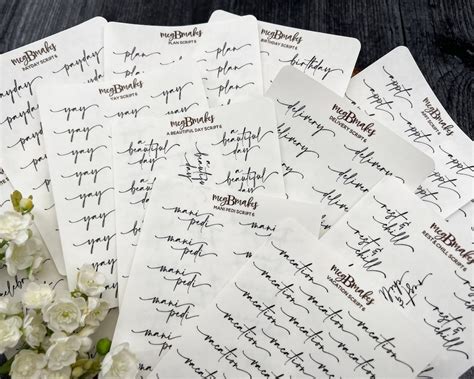 megBmaks
PAYDAY SCRIPT 6
payday
payday
payday
payday
payday
megBmaks
PLAN SCRIPT 6
plan
plan
plan
plan
plan
plan
megBmaks
BIRTHDAY SCRIPT 6
birthday
megBmaks
YAY SCRIPT 6
yay
yay
yay
yay
yay
yay
yay
yay
yay
yay
yay
megBmaks
A BEAUTIFUL DAY SCRIPT 6
a
beautiful
day
a
beautiful
day
megBmaks
DELIVERY SCRIPT 6
delivery
delivery
delivery
delivery
delivery
megBmaks
appt
appt
appt
appt
appt
megBmaks
MANI PEDI SCRIPT 6
mani
pedi
mani
pedi
mani
pedi
mani
pedi
megBmaks
REST & CHILL SCRIPT 6
rest &
chill
rest &
chill
rest &
chill
megBmaks
VACATION SCRIPT 6
vacation
vacation
vacation
vacation
vacation
vacation
vacation
vacation
vacation
vacation
vacation
vacation